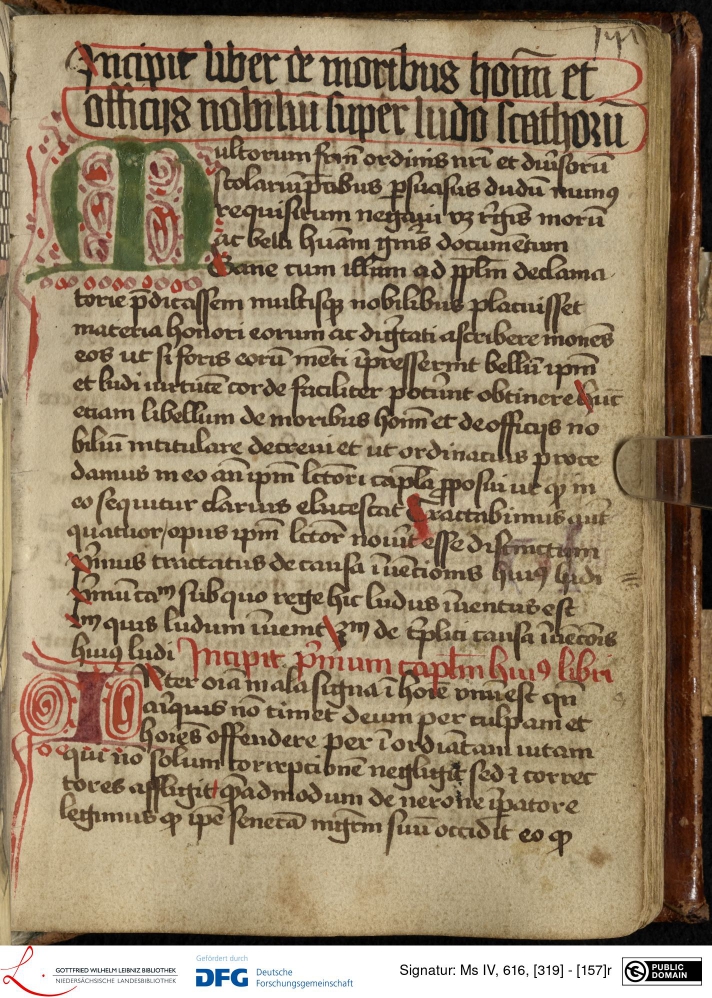 Incipit liber de moribus homī et
officijs nobiliū super ludo scathorū
Multorum frm̄ ordinis nrī et diūsorū
scolariū p̄cibus psuasus dudū nimis
requisitum negaui vz rēgis morū
ac belli hūani gnīs documentum
Sane cum illum ad pplm declama
torie p̄dicassem multisqz nobilibus placuisset
materia honori eorum ac dignitati ascribere monēs
eos ut si foris eorū mēti īpresserint bellū ipm
et ludi uirtutē corde faciliter poterūt obtinere huc
etiam libellum de moribus homī et de officijs no
biliū intitulare decreui et ut ordinacius proce
damus in eo an̄ ipm lctori capla pposui ut qp in
eo sequitur clarius elucescat Tractabimus aut
quatuor opus ipm lctor nouit esse distinctum
Primus tractatus de causa īuēcionis huiꝯ ludi
Pm̄ū camᵐ sub quo rege hic ludus īuentus est
ijm quis ludum īuenit 3ᵐ de tplici causa īuēcōis
huiꝯ ludi Incipit pm̄um caplm huiꝯ libri
INter oīa mala signa ī hoīe vnū est qn̄
aliquis nō timet deum per culpam et
hoīes offendere per īordīatam uitam
qui nō solum correpcionē negligit sed ⁊ correc
tores affligit qēadmodum de nerone īpatore
legimus qp ipē senecā mgrm suū occidit eo qp
GOTTFRIED WILHELM LEIBNIZ BIBLIOTHEK
NIEDERSÄCHSISCHE LANDESBIBLIOTHEK
Gefördert durch
DFG Deutsche
Forschungsgemeinschaft
Signatur: Ms IV, 616, [319] - [157]r
PUBLIC
DOMAIN